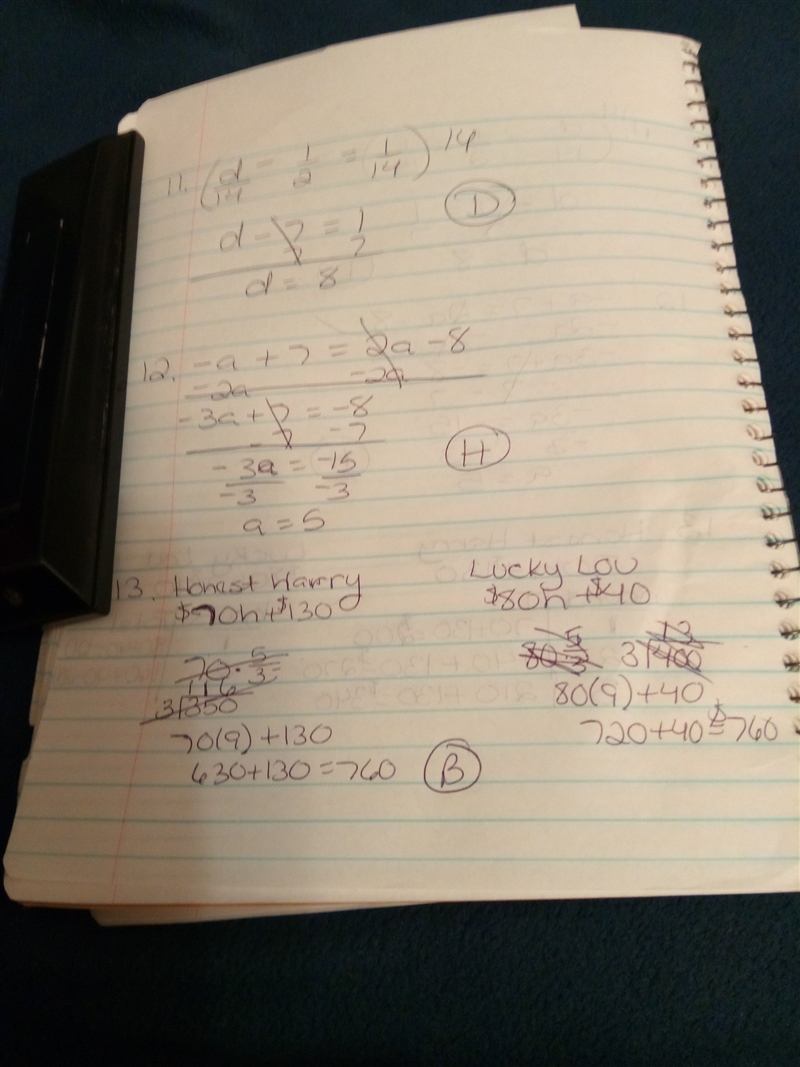 11. (d/14 - 1/2 = 1/14) 14
d - 7 = 1
7 7
d = 8
D
12. -a + 7 = 2a - 8
-2a -2a
-3a + 7 = -8
- 7 -7
-3a = -15
-3 -3
a = 5
H
13. Honest Harry
$70h + $130
70 · 5/3 =
116
3)350
70(9) + 130
630 + 130 = 760
B
Lucky Lou
$80h + $40
13
3)400
80(9) + 40
720 + 40 = $760